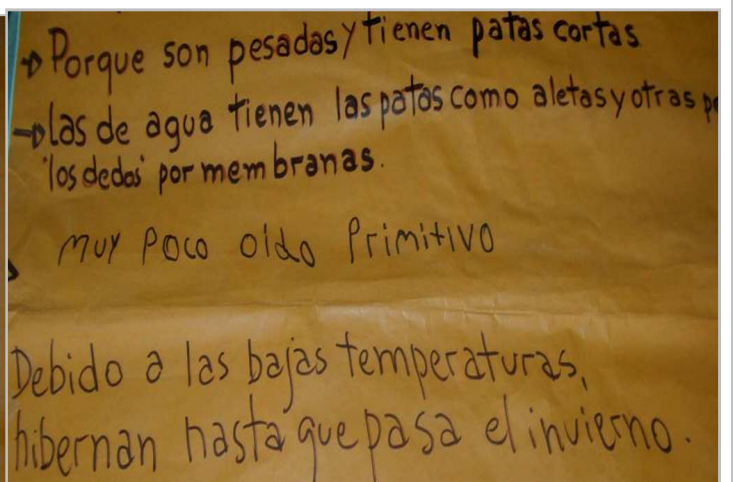 → Porque son pesadas y tienen patas cortas
→ Las de agua tienen las patas como aletas y otras
"los dedos" por membranas.
muy poco oído Primitivo
Debido a las bajas temperaturas,
hibernan hasta que pasa el invierno.